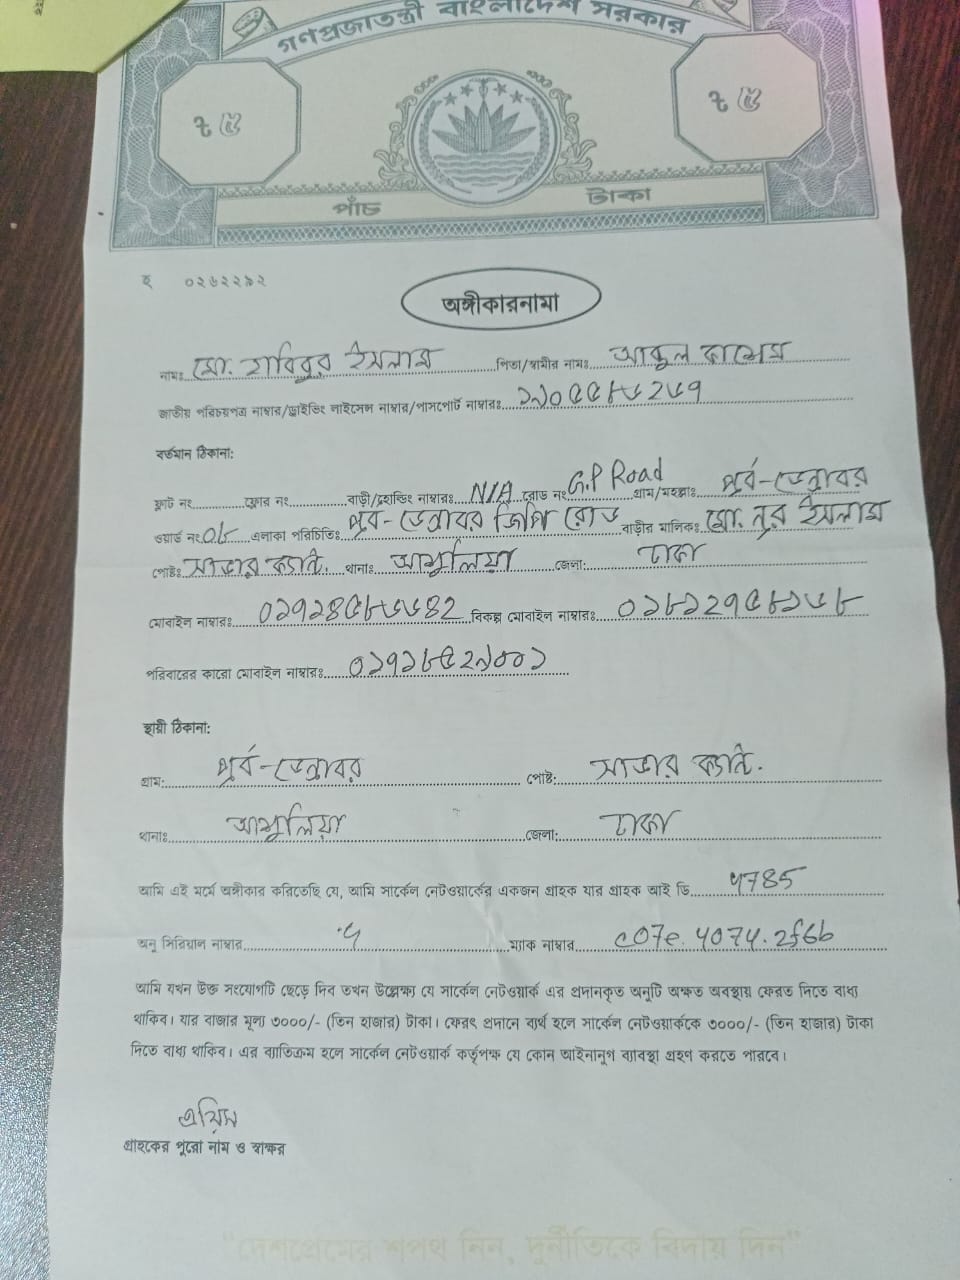 গণপ্রজাতন্ত্রী বাংলাদেশ সরকার
৳ ৫ ৳ ৫
পাঁচ টাকা
হ ০২৬২২৯২
অঙ্গীকারনামা
নামঃ মো. হাবিবুর ইসলাম পিতা/স্বামীর নামঃ আবুল কাশেম
জাতীয় পরিচয়পত্র নাম্বার/ড্রাইভিং লাইসেন্স নাম্বার/পাসপোর্ট নাম্বারঃ
বর্তমান ঠিকানা:
ফ্লাট নং ফ্লোর নং বাড়ী/হোল্ডিং নাম্বারঃ N/A রোড নং G.P Road গ্রাম/মহল্লাঃ পূর্ব-ডেন্ডাবর
ওয়ার্ড নং ০৮ এলাকা পরিচিতিঃ পূর্ব-ডেন্ডাবর জিপি রোড বাড়ীর মালিকঃ মো. নুর ইসলাম
পোষ্টঃ সাভার ক্যান্ট. থানাঃ আশুলিয়া জেলা: ঢাকা
মোবাইল নাম্বারঃ ০১৭১৪৫৮৬৬৪২ বিকল্প মোবাইল নাম্বারঃ ০১৮১২৭৫৮১৬৮
পরিবারের কারো মোবাইল নাম্বারঃ
স্থায়ী ঠিকানা:
গ্রাম: পূর্ব-ডেন্ডাবর পোষ্ট: সাভার ক্যান্ট.
থানাঃ আশুলিয়া জেলা: ঢাকা
আমি এই মর্মে অঙ্গীকার করিতেছি যে, আমি সার্কেল নেটওয়ার্কের একজন গ্রাহক যার গ্রাহক আই ডি 4785
অনু সিরিয়াল নাম্বার ম্যাক নাম্বার c07e.4074.2f6b
আমি যখন উক্ত সংযোগটি ছেড়ে দিব তখন উল্লেক্ষ্য যে সার্কেল নেটওয়ার্ক এর প্রদানকৃত অনুটি অক্ষত অবস্থায় ফেরত দিতে বাধ্য
থাকিব। যার বাজার মূল্য ৩০০০/- (তিন হাজার) টাকা। ফেরৎ প্রদানে ব্যর্থ হলে সার্কেল নেটওয়ার্ককে ৩০০০/- (তিন হাজার) টাকা
দিতে বাধ্য থাকিব। এর ব্যতিক্রম হলে সার্কেল নেটওয়ার্ক কর্তৃপক্ষ যে কোন আইনানুগ ব্যাবস্থা গ্রহণ করতে পারবে।
গ্রাহকের পুরো নাম ও স্বাক্ষর
"দেশপ্রেমের শপথ নিন, দুর্নীতিকে বিদায় দিন"